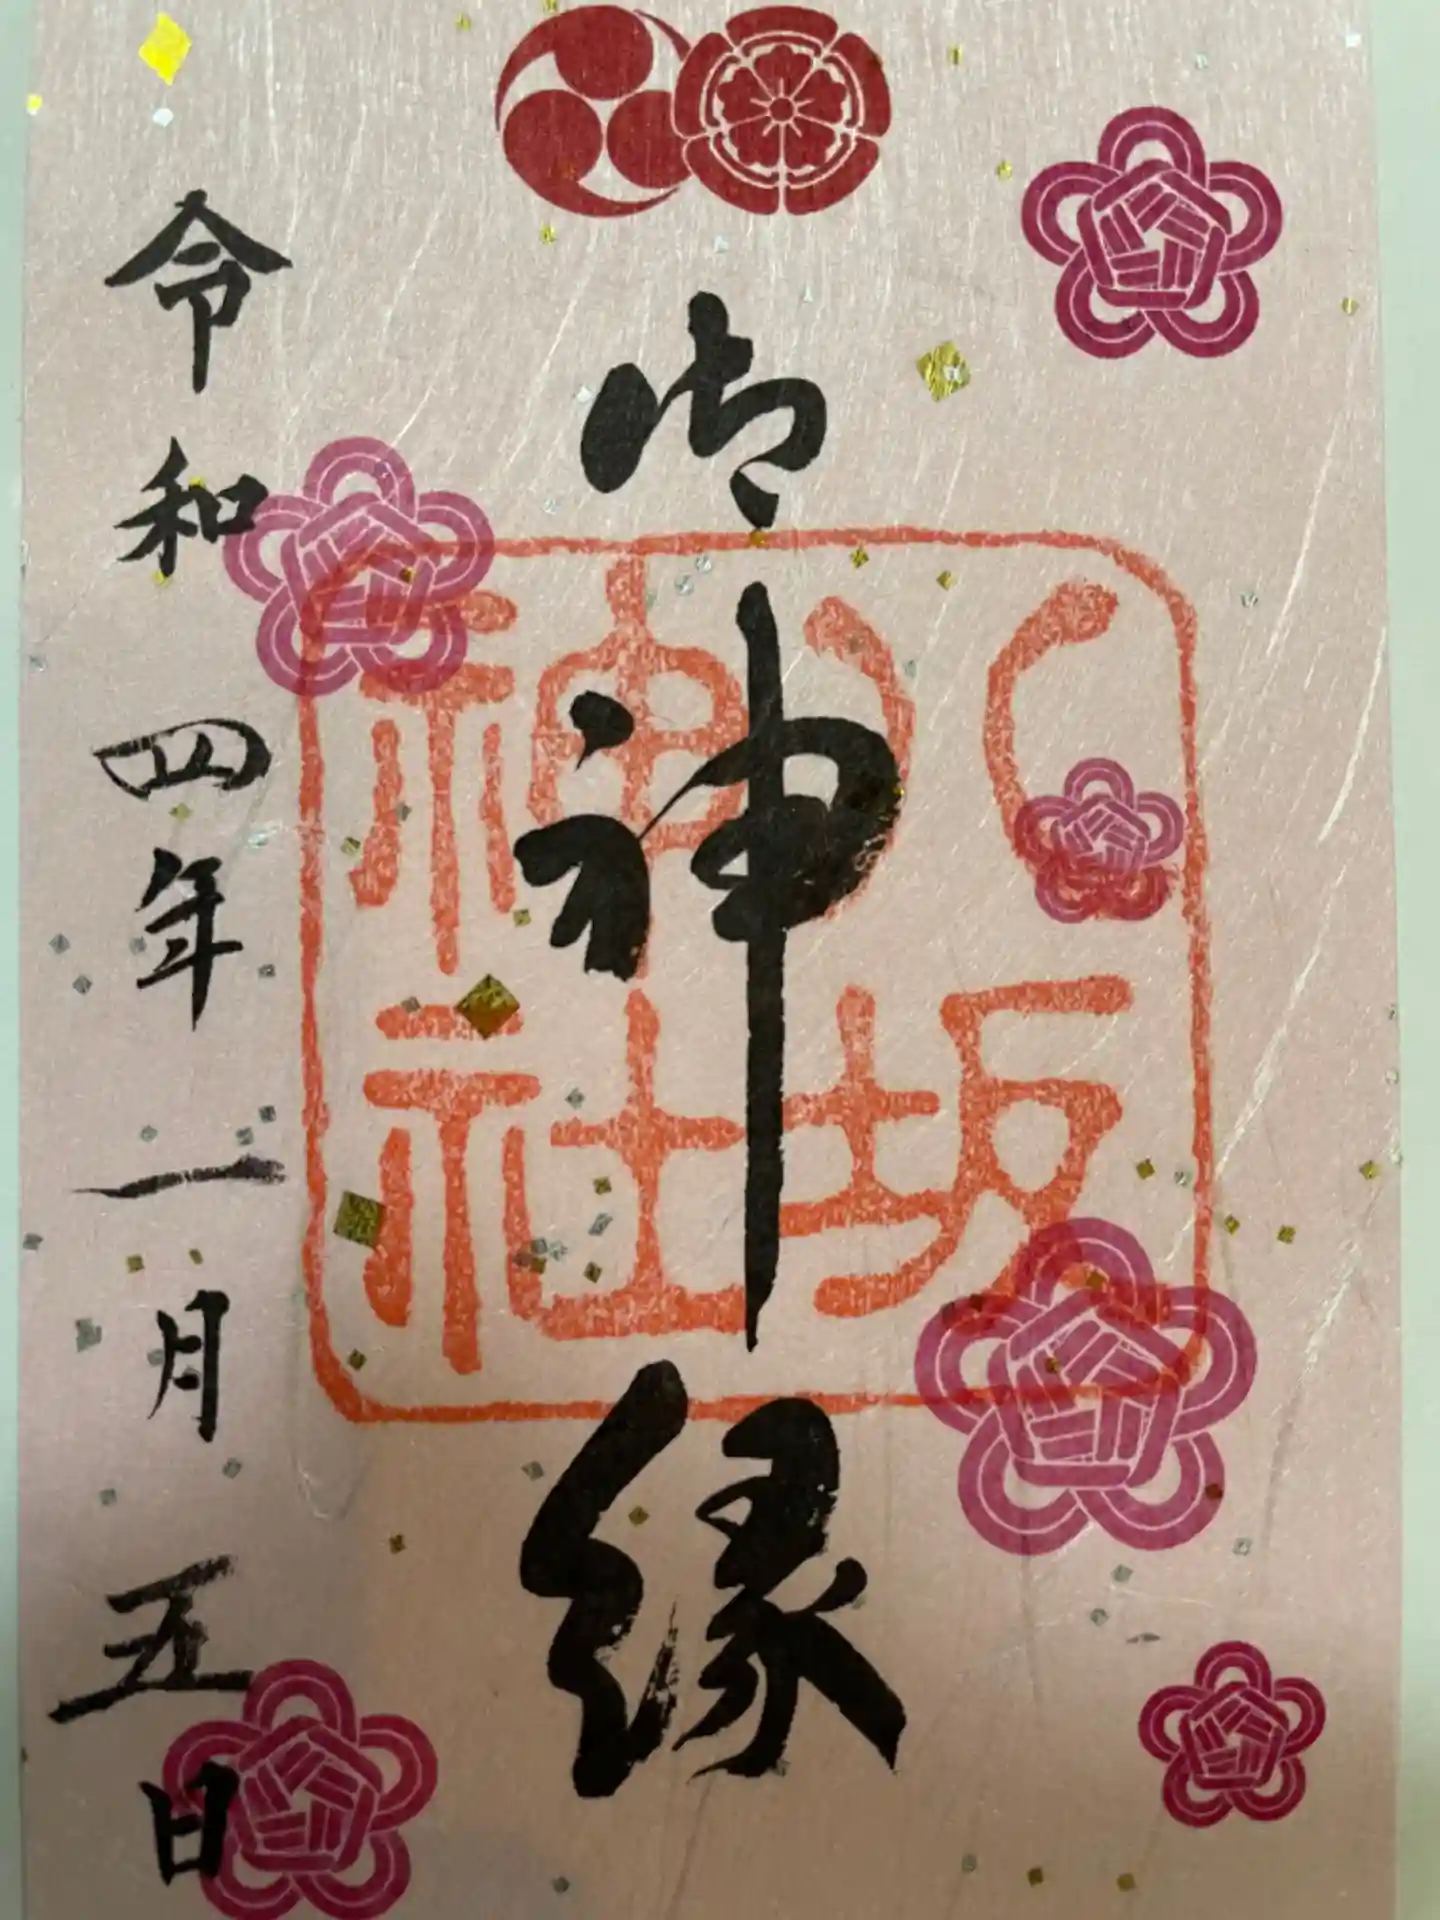 御神縁
八坂
神社
令和四年一月五日